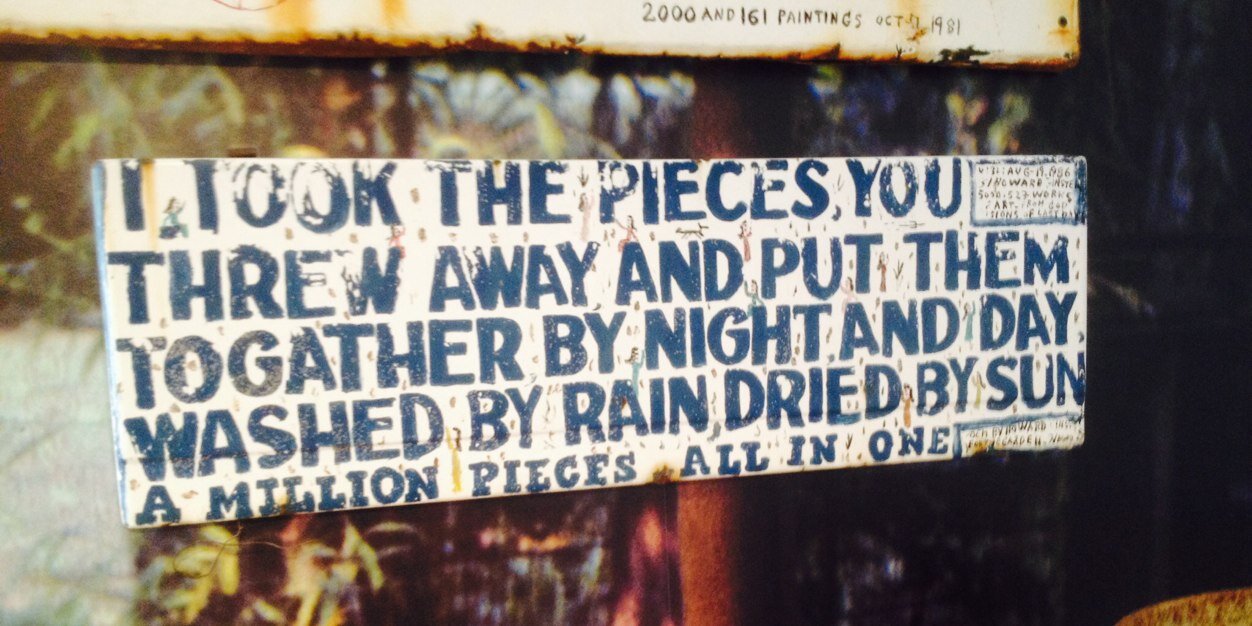 2000 AND 161 PAINTINGS OCT 1981
I TOOK THE PIECES, YOU
THREW AWAY AND PUT THEM
TOGATHER BY NIGHT AND DAY,
WASHED BY RAIN DRIED BY SUN
A MILLION PIECES ALL IN ONE
AUG-19, 1986
HOWARD
WORKS
ART-FROM GOD
OF
BY HOWARD
GARDEN